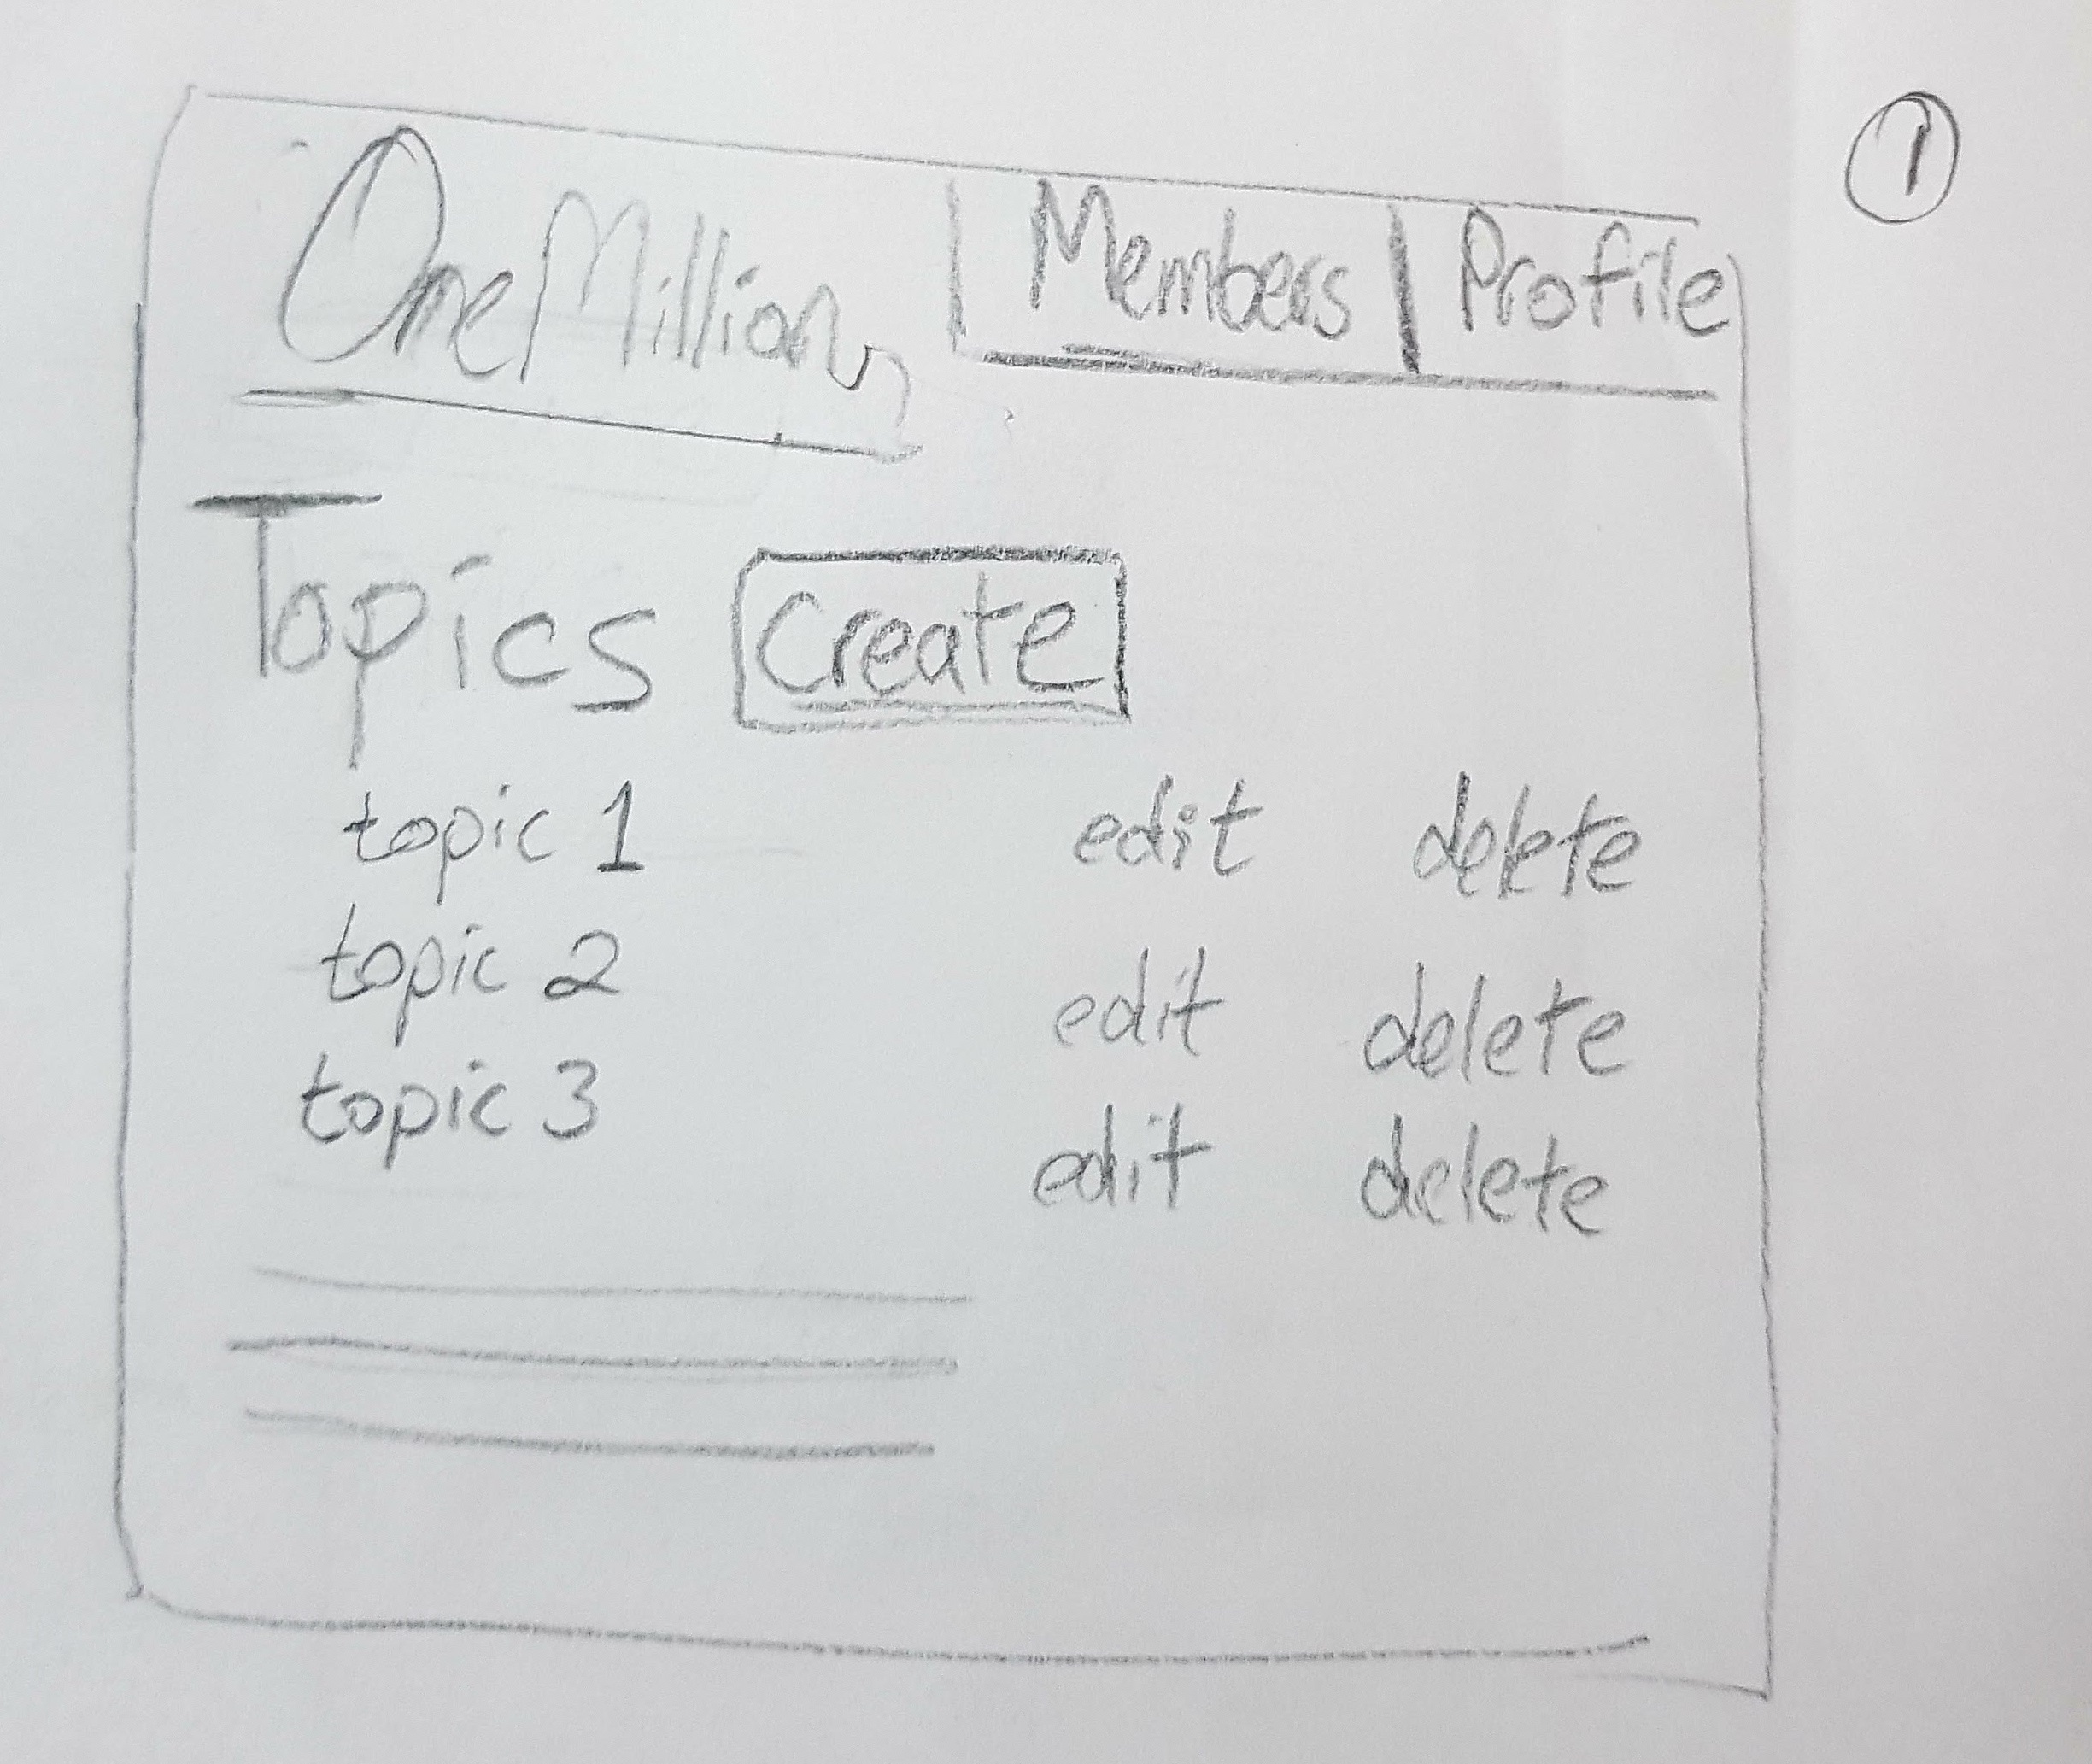 1
OneMillion Members Profile
Topics Create
topic 1 edit delete
topic 2 edit delete
topic 3 edit delete